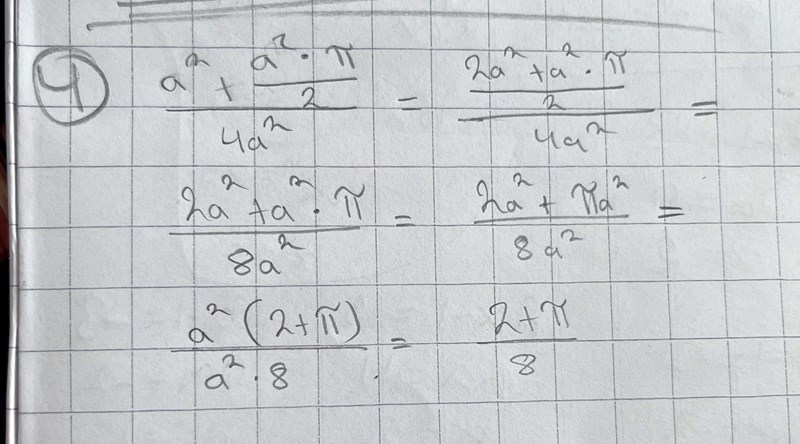 4) (a² + (a² · π)/2)/(4a²) = ((2a² + a² · π)/2)/(4a²) =
(2a² + a² · π)/(8a²) = (2a² + πa²)/(8a²) =
(a² (2+π))/(a² · 8) = (2+π)/8